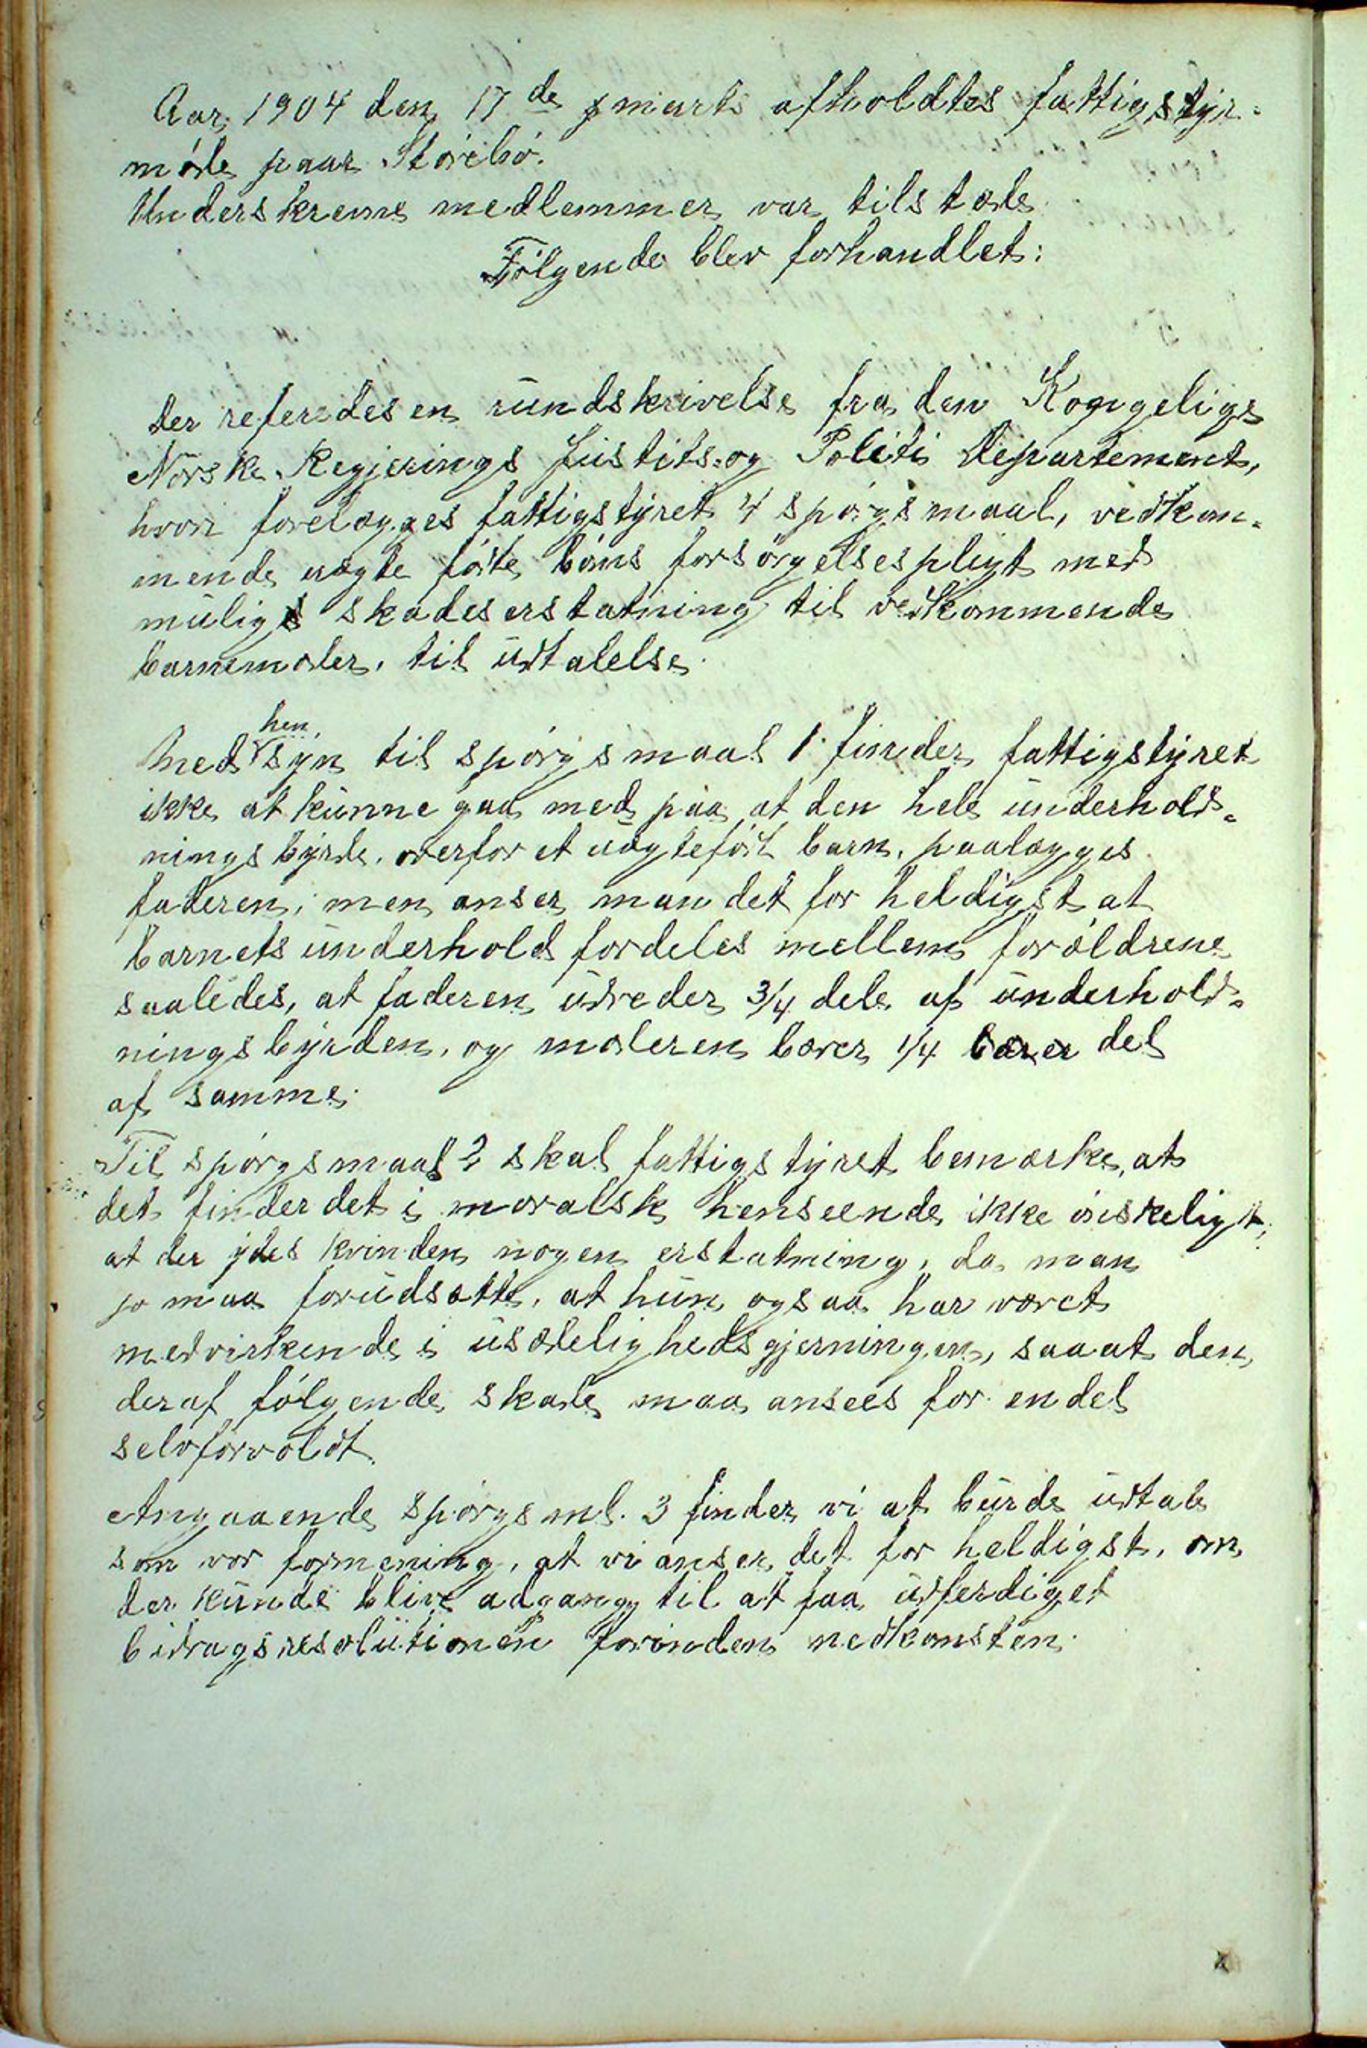 Aar 1904 den 17de marts afholdtes fattigstyr-
møde paa Storebø.
Underskrevne medlemmer var tilstæde
Følgende blev forhandlet:
Der referedes en rundskrivelse fra den Kongelige
Norske Regjerings Justits- og Politi Departement,
hvori forelægges fattigstyret 4 spørgsmaal, vedkom-
mende uægte fødte børns forsørgelsespligt med
mulig skadeserstatning til vedkommende
barnemoder, til udtalelse.
hen
Med syn til spørgsmaal 1. finder fattigstyret
ikke at kunne gaa med paa at den hele underhold-
nings byrde, overfor et uægtefødt barn, paalægges
faderen, men anser man det for heldigst at
barnets underhold fordeles mellem forældrene
saaledes, at faderen udreder 3/4 dele af underhold-
ningsbyrden, og moderen bærer 1/4 bærer del
af samme.
Til spørgsmaal 2 skal fattigstyret bemærke, at
det finder det i moralsk henseende ikke ønskeligt,
at der ydes kvinden nogen erstatning, da man
jo maa forudsætte, at hun ogsaa har været
medvirkende i usædelighedsgjerningen, saa at den
deraf følgende skade maa ansees for en del
selvforvoldt.
Angaaende spørgsml. 3 finder vi at burde udtale
som vor formening, at vi anser det for heldigst, om
der kunde blive adgang til at faa udferdiget
bidragsresolutionen forinden nedkomsten.